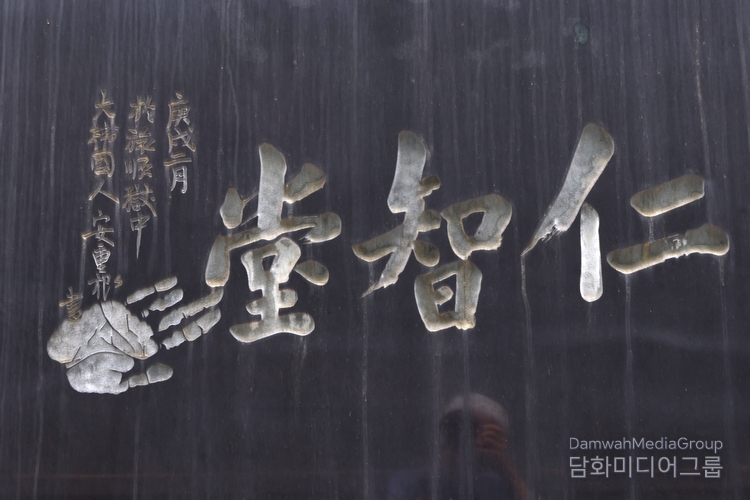 仁智堂
庚戌二月
於旅順獄中
大韓國人 安重根
書
DamwahMediaGroup
담화미디어그룹